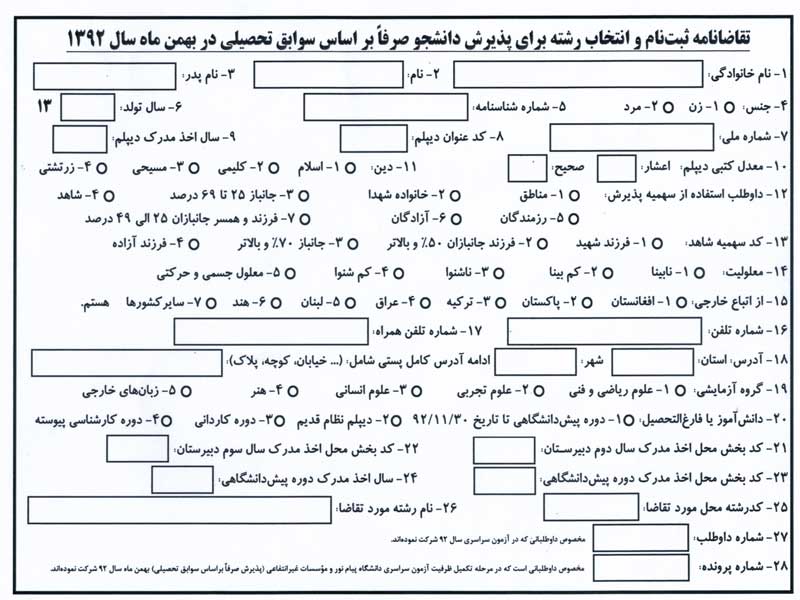 تقاضانامه ثبت‌نام و انتخاب رشته برای پذیرش دانشجو صرفاً بر اساس سوابق تحصیلی در بهمن ماه سال ۱۳۹۲
۱- نام خانوادگی: ۲- نام: ۳- نام پدر:
۴- جنس: ۱- زن ۲- مرد ۵- شماره شناسنامه: ۶- سال تولد: ۱۳
۷- شماره ملی: ۸- کد عنوان دیپلم: ۹- سال اخذ مدرک دیپلم:
۱۰- معدل کتبی دیپلم: اعشار: صحیح: ۱۱- دین: ۱- اسلام ۲- کلیمی ۳- مسیحی ۴- زرتشتی
۱۲- داوطلب استفاده از سهمیه پذیرش: ۱- مناطق ۲- خانواده شهدا ۳- جانباز ۲۵ تا ۶۹ درصد ۴- شاهد
۵- رزمندگان ۶- آزادگان ۷- فرزند و همسر جانبازان ۲۵ الی ۴۹ درصد
۱۳- کد سهمیه شاهد: ۱- فرزند شهید ۲- فرزند جانبازان ۵۰٪ و بالاتر ۳- جانباز ۷۰٪ و بالاتر ۴- فرزند آزاده
۱۴- معلولیت: ۱- نابینا ۲- کم بینا ۳- ناشنوا ۴- کم شنوا ۵- معلول جسمی و حرکتی
۱۵- از اتباع خارجی: ۱- افغانستان ۲- پاکستان ۳- ترکیه ۴- عراق ۵- لبنان ۶- هند ۷- سایرکشورها هستم.
۱۶- شماره تلفن: ۱۷- شماره تلفن همراه:
۱۸- آدرس: استان: شهر: ادامه آدرس کامل پستی شامل: (... خیابان، کوچه، پلاک):
۱۹- گروه آزمایشی: ۱- علوم ریاضی و فنی ۲- علوم تجربی ۳- علوم انسانی ۴- هنر ۵- زبان‌های خارجی
۲۰- دانش‌آموز یا فارغ‌التحصیل: ۱- دوره پیش‌دانشگاهی تا تاریخ ۹۲/۱۱/۳۰ ۲- دیپلم نظام قدیم ۳- دوره کاردانی ۴- دوره کارشناسی پیوسته
۲۱- کد بخش محل اخذ مدرک سال دوم دبیرستان: ۲۲- کد بخش محل اخذ مدرک سال سوم دبیرستان:
۲۳- کد بخش محل اخذ مدرک دوره پیش‌دانشگاهی: ۲۴- سال اخذ مدرک دوره پیش‌دانشگاهی:
۲۵- کدرشته محل مورد تقاضا: ۲۶- نام رشته مورد تقاضا:
۲۷- شماره داوطلب: مخصوص داوطلبانی که در آزمون سراسری سال ۹۲ شرکت نموده‌اند.
۲۸- شماره پرونده: مخصوص داوطلبانی است که در مرحله تکمیل ظرفیت آزمون سراسری دانشگاه پیام نور و مؤسسات غیرانتفاعی (پذیرش صرفاً براساس سوابق تحصیلی) بهمن ماه سال ۹۲ شرکت نموده‌اند.